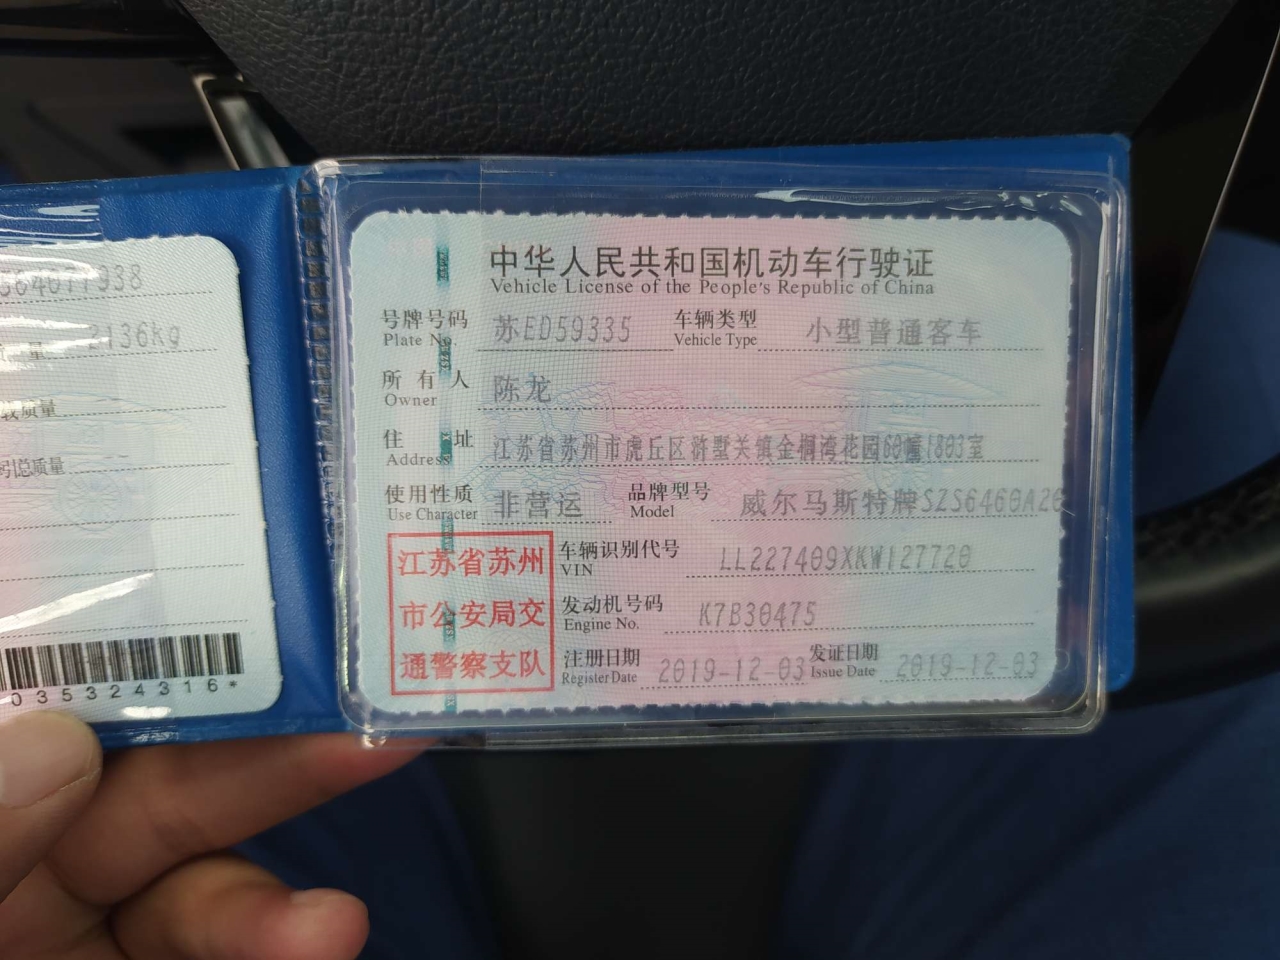 564077938
量 2136kg
质量
引总质量
035324316*
中华人民共和国机动车行驶证
Vehicle License of the People's Republic of China
号牌号码 苏ED59335 车辆类型 小型普通客车
Plate No. Vehicle Type
所有人 陈龙
Owner
住址 江苏省苏州市虎丘区浒墅关镇金桐湾花园60幢1803室
Address
使用性质 非营运 品牌型号 威尔马斯特牌SZS6460A20
Use Character Model
江苏省苏州
市公安局交
通警察支队
车辆识别代号 LL227409XKW127720
VIN
发动机号码 K7B30475
Engine No.
注册日期 2019-12-03 发证日期 2019-12-03
Register Date Issue Date